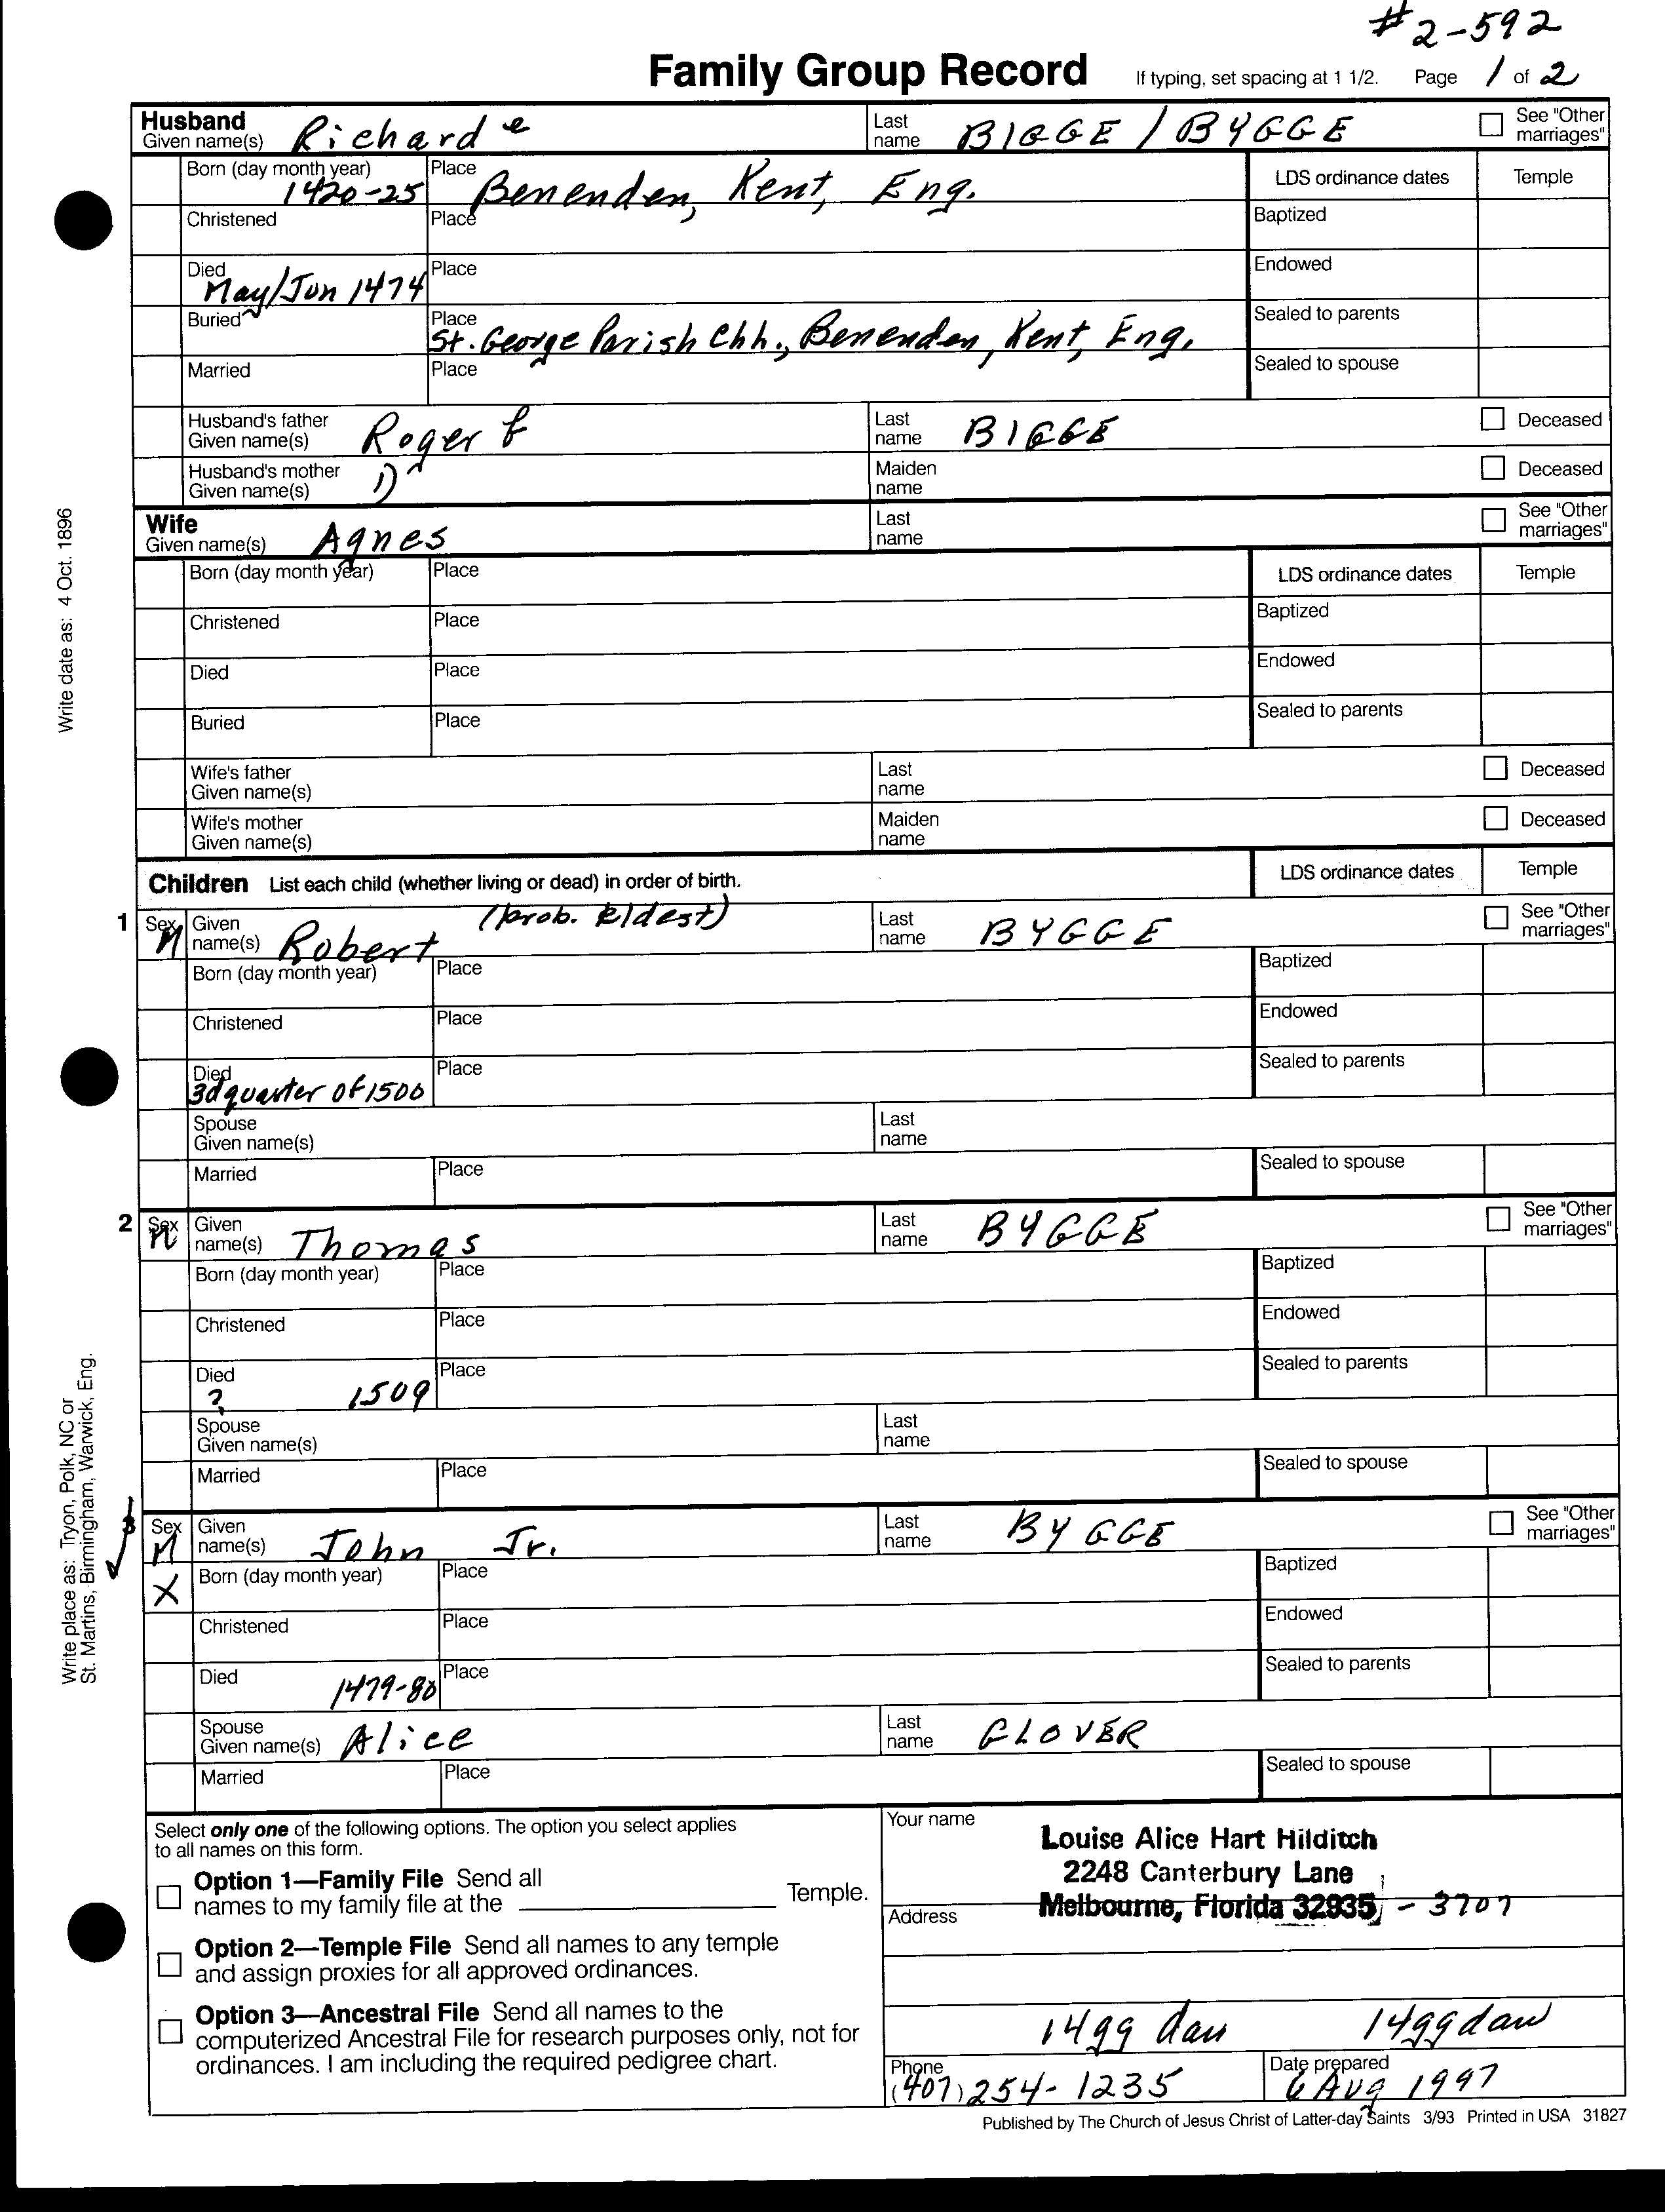 # 2-592
Family Group Record If typing, set spacing at 1 1/2. Page 1 of 2
Husband
Given name(s) Richard e Last name BIGGE / BYGGE See "Other marriages"
Born (day month year) 1420-25 Place Benenden, Kent, Eng. LDS ordinance dates Temple
Christened Place Baptized
Died May/Jun 1474 Place Endowed
Buried Place St. George Parish Chh., Benenden, Kent, Eng. Sealed to parents
Married Place Sealed to spouse
Husband's father Given name(s) Roger f Last name BIGGE Deceased
Husband's mother Given name(s) 1) Maiden name Deceased
Wife
Given name(s) Agnes Last name See "Other marriages"
Born (day month year) Place LDS ordinance dates Temple
Christened Place Baptized
Died Place Endowed
Buried Place Sealed to parents
Wife's father Given name(s) Last name Deceased
Wife's mother Given name(s) Maiden name Deceased
Children List each child (whether living or dead) in order of birth. LDS ordinance dates Temple
1 Sex M Given name(s) Robert (prob. eldest) Last name BYGGE See "Other marriages"
Born (day month year) Place Baptized
Christened Place Endowed
Died 3d quarter of 1500 Place Sealed to parents
Spouse Given name(s) Last name
Married Place Sealed to spouse
2 Sex M Given name(s) Thomas Last name BYGGE See "Other marriages"
Born (day month year) Place Baptized
Christened Place Endowed
Died ? 1509 Place Sealed to parents
Spouse Given name(s) Last name
Married Place Sealed to spouse
3 Sex M Given name(s) John Jr. Last name BYGGE See "Other marriages"
X Born (day month year) Place Baptized
Christened Place Endowed
Died 1479-80 Place Sealed to parents
Spouse Given name(s) Alice Last name GLOVER
Married Place Sealed to spouse
Select only one of the following options. The option you select applies
to all names on this form.
Option 1—Family File Send all
names to my family file at the Temple.
Option 2—Temple File Send all names to any temple
and assign proxies for all approved ordinances.
Option 3—Ancestral File Send all names to the
computerized Ancestral File for research purposes only, not for
ordinances. I am including the required pedigree chart.
Your name Louise Alice Hart Hilditch
2248 Canterbury Lane
Address Melbourne, Florida 32935 - 3707
14gg dau 14gg dau
Phone (407) 254-1235 Date prepared 6 Aug 1997
Published by The Church of Jesus Christ of Latter-day Saints 3/93 Printed in USA 31827
Write date as: 4 Oct. 1896
Write place as: Tryon, Polk, NC or
St. Martins, Birmingham, Warwick, Eng.